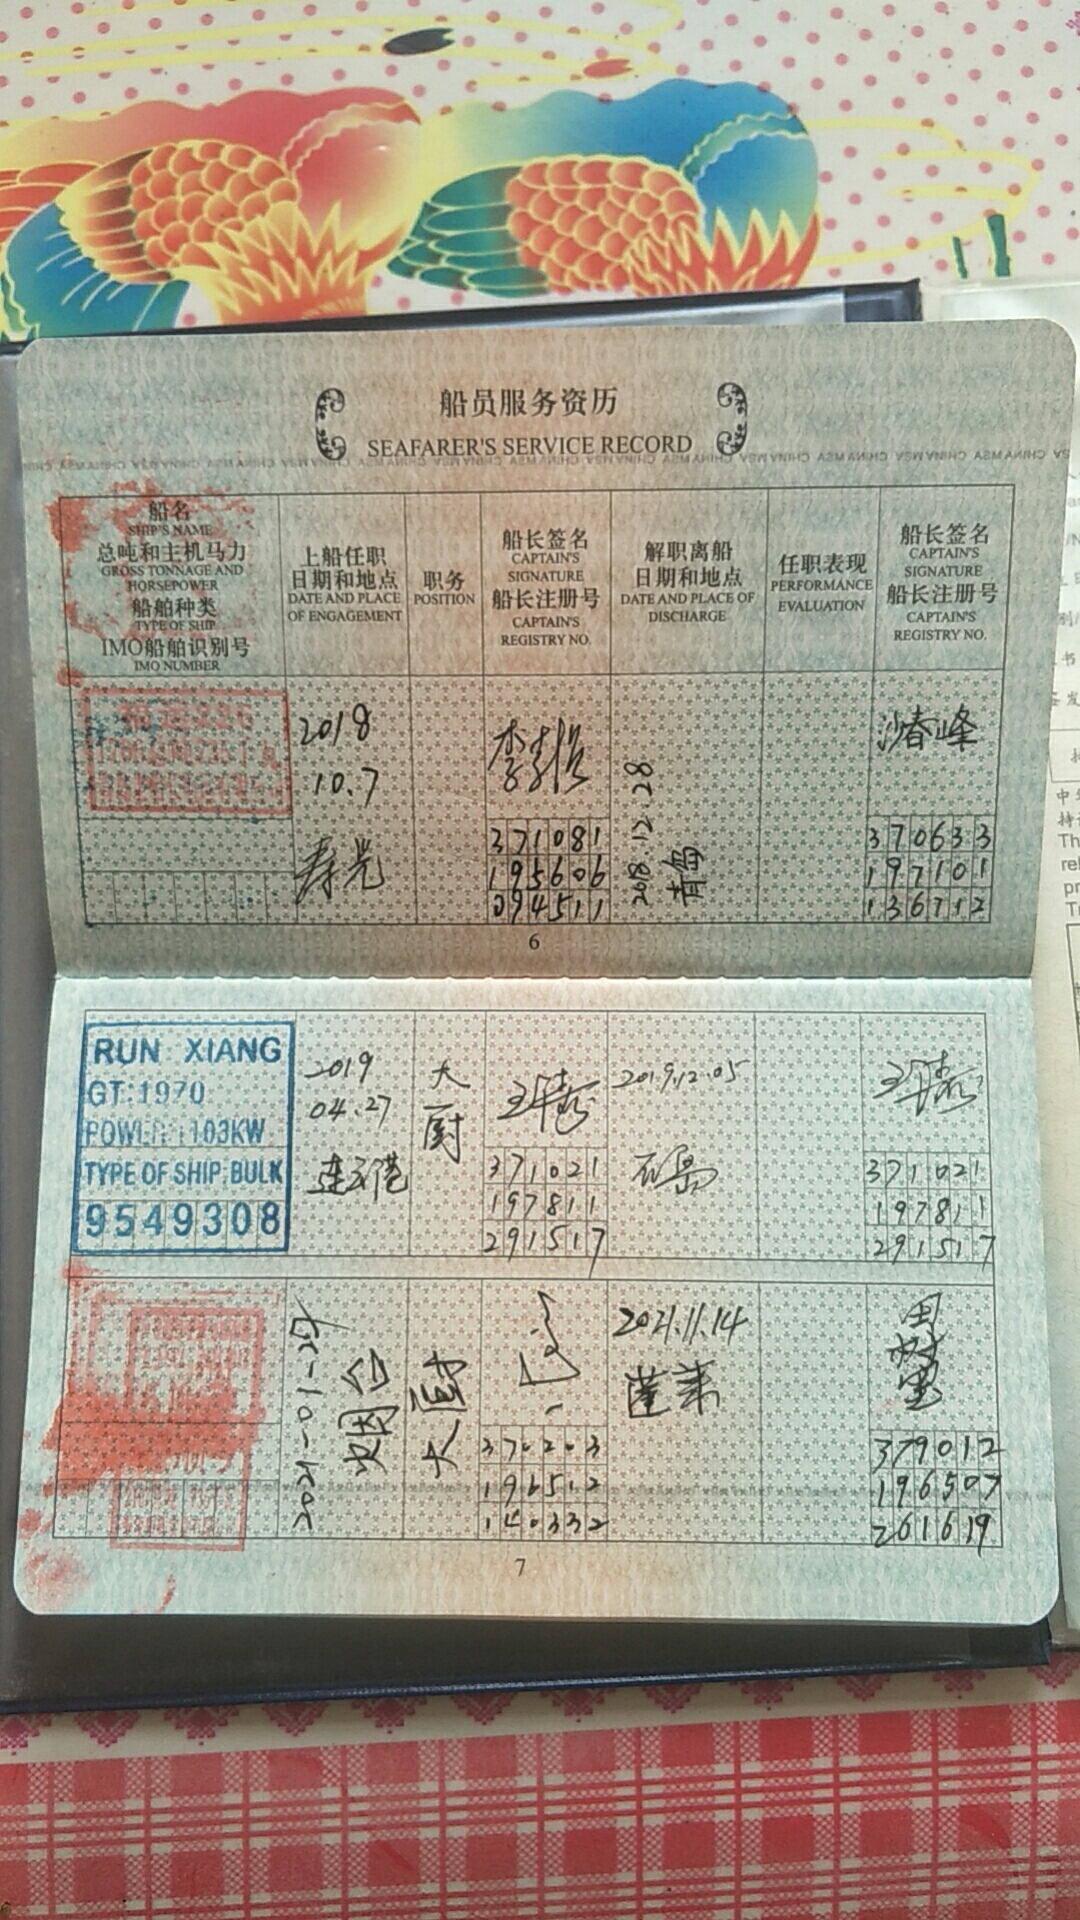 船员服务资历
SEAFARER'S SERVICE RECORD
船名
SHIP'S NAME
总吨和主机马力
GROSS TONNAGE AND
HORSEPOWER
船舶种类
TYPE OF SHIP
IMO船舶识别号
IMO NUMBER
上船任职
日期和地点
DATE AND PLACE
OF ENGAGEMENT
职务
POSITION
船长签名
CAPTAIN'S
SIGNATURE
船长注册号
CAPTAIN'S
REGISTRY NO.
解职离船
日期和地点
DATE AND PLACE OF
DISCHARGE
任职表现
PERFORMANCE
EVALUATION
船长签名
CAPTAIN'S
SIGNATURE
船长注册号
CAPTAIN'S
REGISTRY NO.
2018
10.7
寿光
371081
195606
094511
2018.12.28
青岛
沙春峰
370633
197101
136712
6
RUN XIANG
GT:1970
POWER:1103KW
TYPE OF SHIP:BULK
9549308
2019
04.27
连云港
大
厨
371021
197811
291517
2019.12.05
石岛
371021
197811
291517
烟台
大厨
370203
196512
140332
2021.11.14
蓬莱
田
树
379012
196507
261619
7